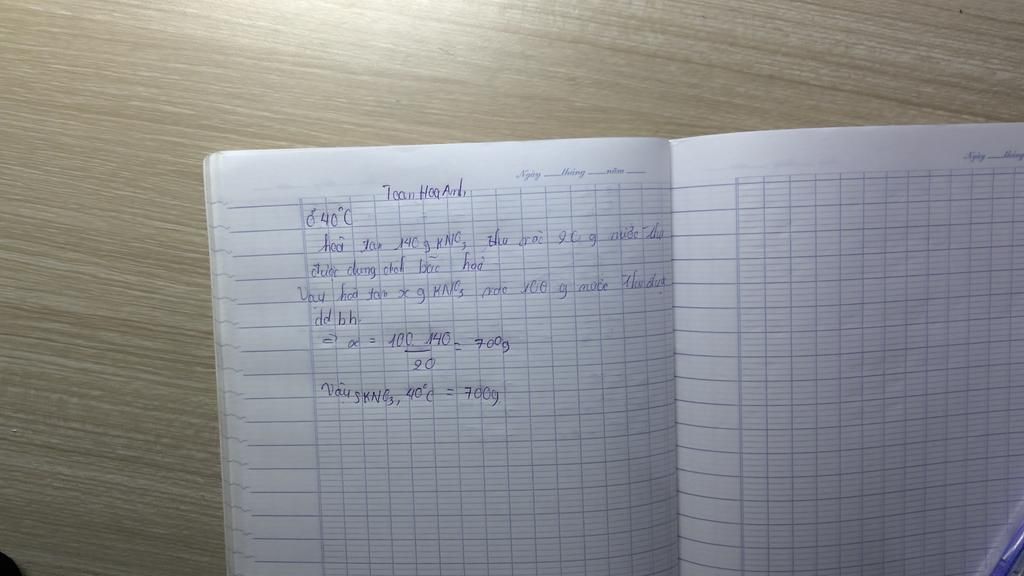 Ngày ___ tháng ___ năm ___
Ngày ___ tháng
Toan Hoa Anh
Ở 40°C
hoà tan 140 g KNO3 thu 20 g nước thu
được dung dịch bão hoà
Vậy hoà tan x g KNO3 100 g nước thu được
dd bh
=> x = 100 . 140 / 20 = 700g
Vậy S KNO3, 40°C = 700g